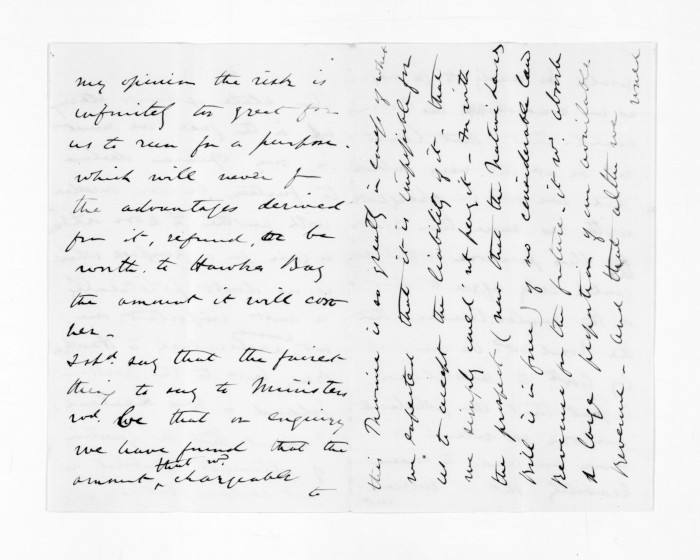 my opinion the risk is
infinitely too great for
us to run for a purpose.
which will never f
the advantages derived
from it, refund, or be
worth. to Hawke Bay
the amount it will cost
her_
I shd. say that the fairest
thing to say to Ministers
wd. be that on enquiry
we have found that the
amount that wd. chargeable
to
this Province is so greatly in excess of what
we expected that it is impossible for
us to accept the liability of it - that
we simply could not pay it - For with
the prospect (now that the Native Lands
Bill is in force) of no considerable land
Revenue for the future - it wd. absorb
a large proportion of our available
Revenue - and that altho' we